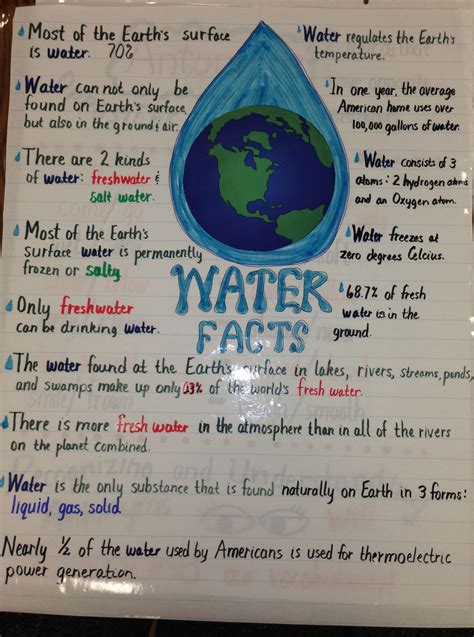 Most of the Earth's surface
is water. 70%
Water can not only be
found on Earth's surface,
but also in the ground & air.
There are 2 kinds
of water: freshwater &
salt water.
Most of the Earth's
surface water is permanently
frozen or salty
Only freshwater
can be drinking water.
Water regulates the Earth's
temperature.
In one year, the average
American home uses over
100,000 gallons of water.
Water consists of 3
atoms: 2 hydrogen atoms
and an Oxygen atom.
Water freezes at
zero degrees Celcius.
68.7% of fresh
water is in the
ground.
WATER
FACTS
The water found at the Earth's surface in lakes, rivers, streams, ponds,
and swamps make up only % of the world's fresh water.
There is more fresh water in the atmosphere than in all of the rivers
on the planet combined.
Water is the only substance that is found naturally on Earth in 3 forms:
liquid, gas, solid
Nearly 1/2 of the water used by Americans is used for thermoelectric
power generation.